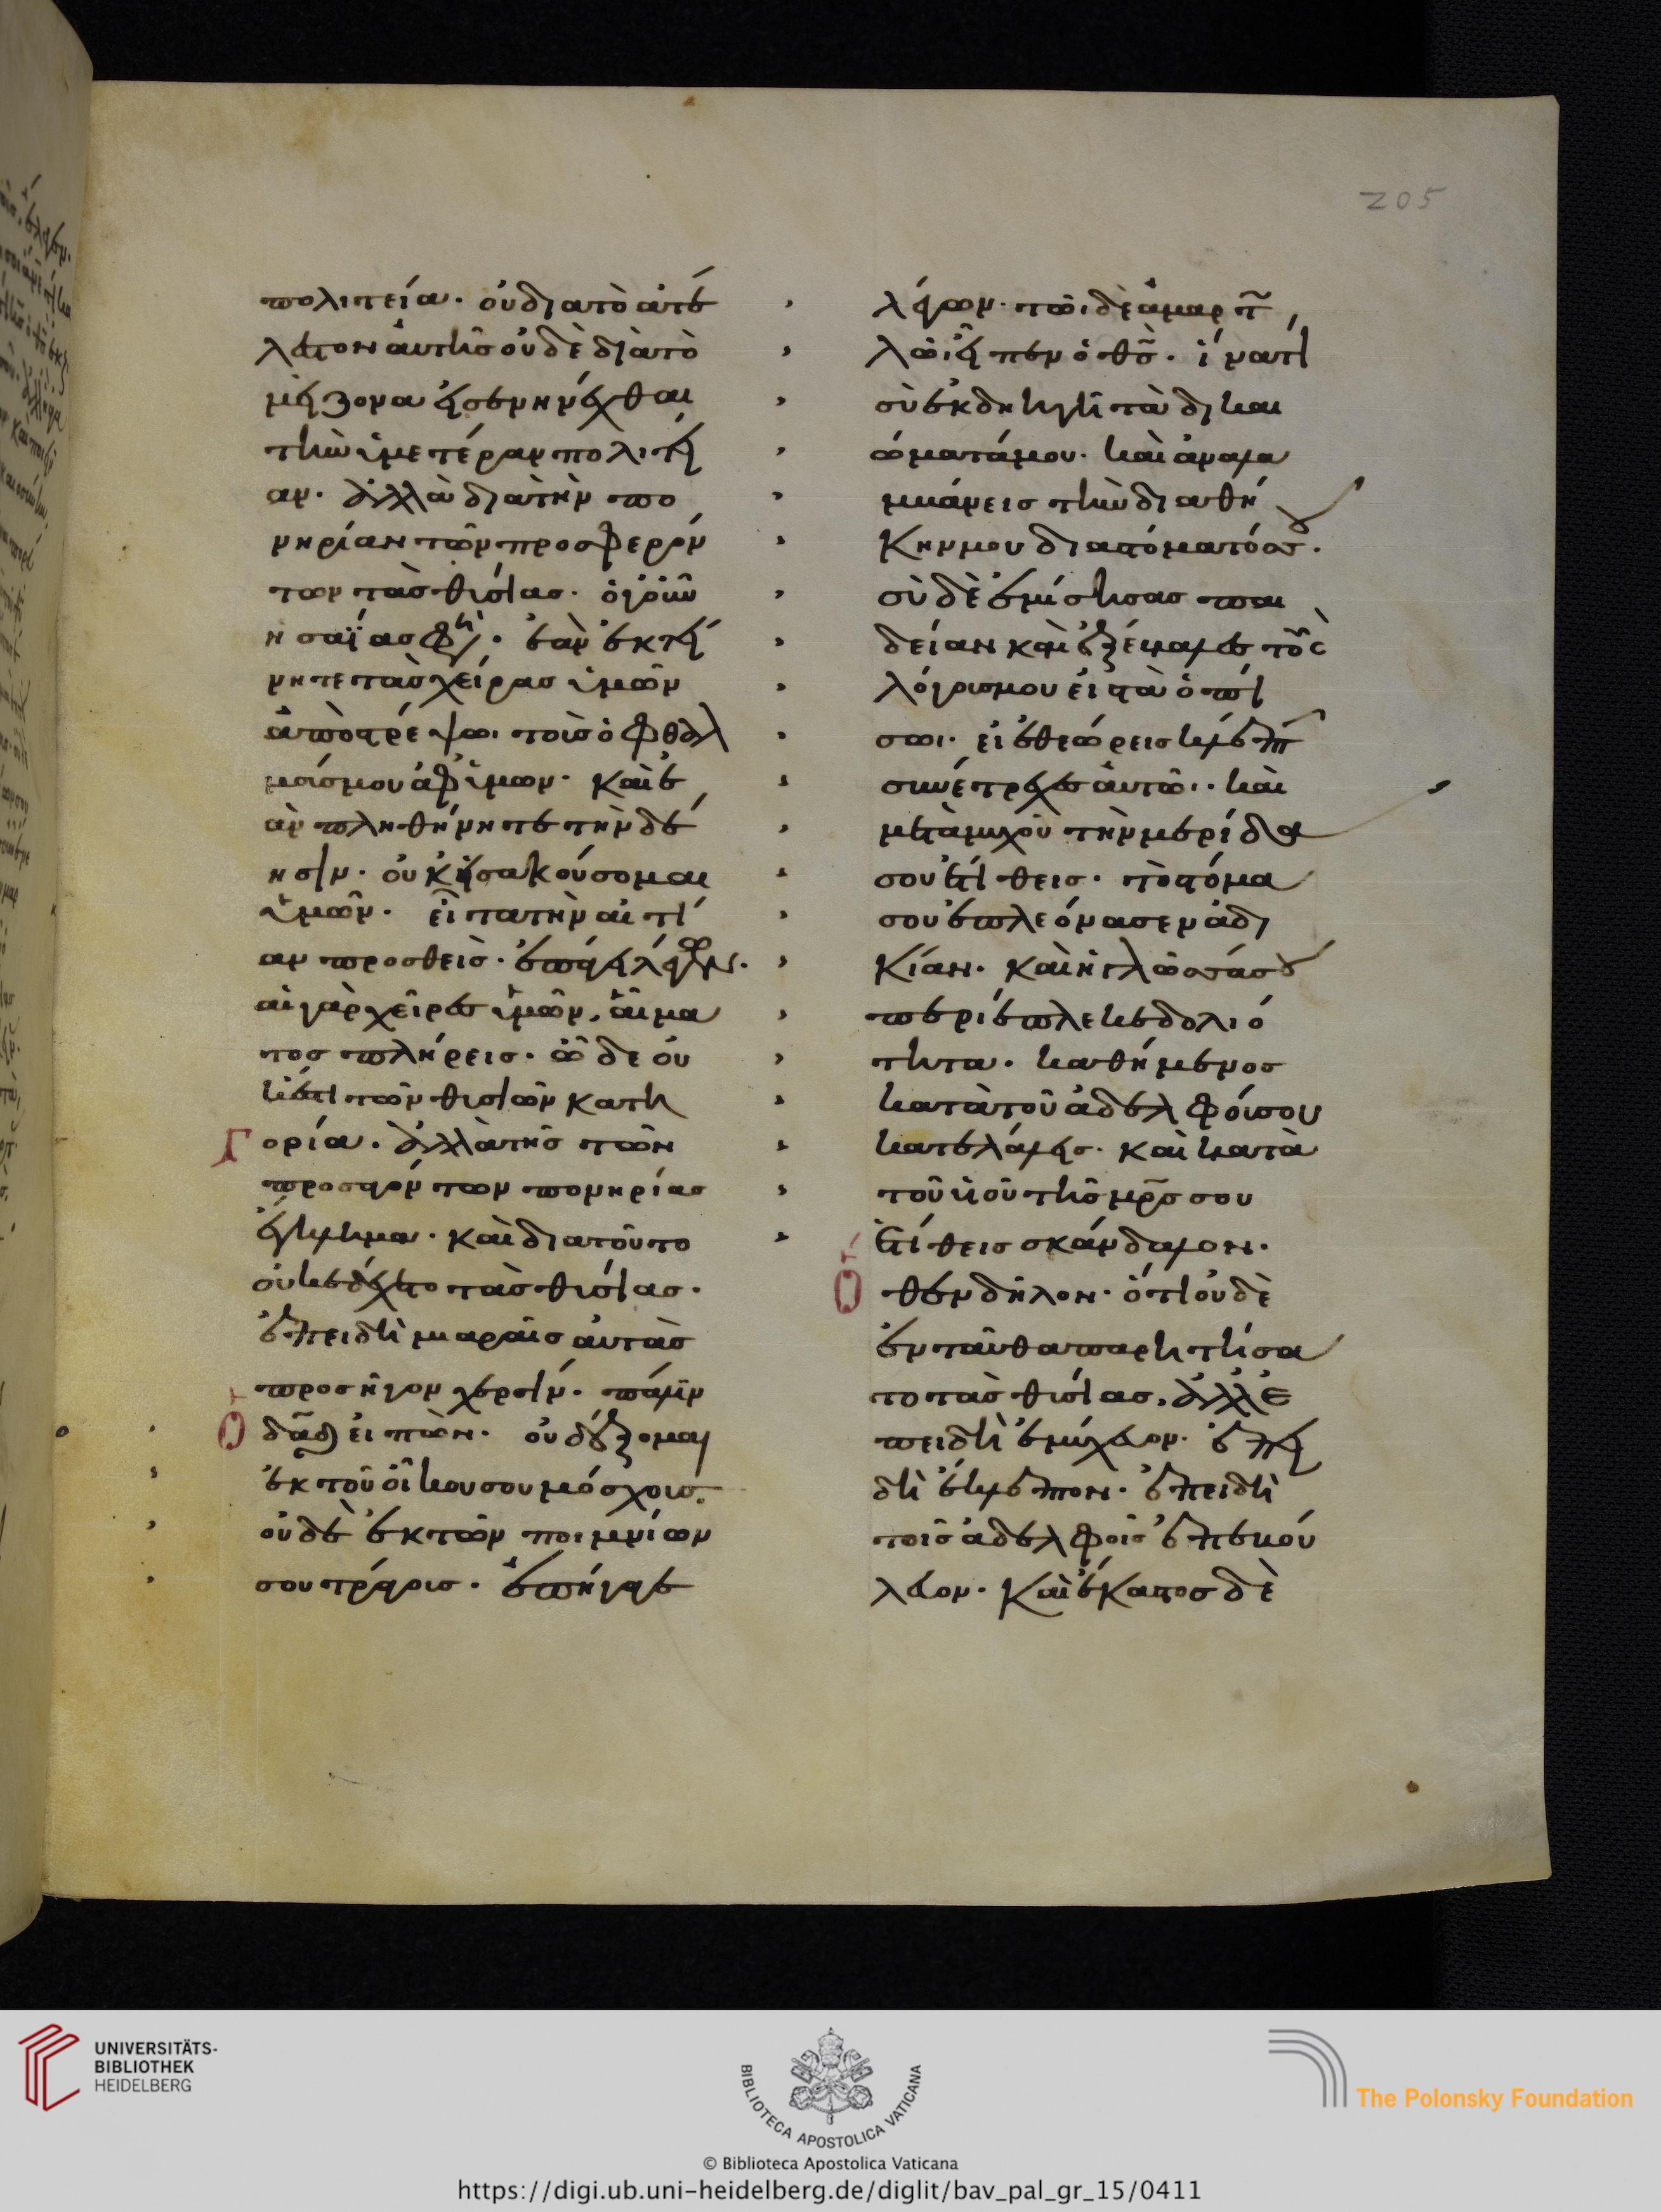 205
πολιτεία. οὐ διατὸ ἀτε
λὲς τὸν αὐτῆς οὐδὲ διὰτὸ
μείζονα εἰσενηνέχθαι
τὴν ἡμετέραν πολιτεί
αν. ἀλλὰ διὰτὴν πο
νηρίαν τῶν προσφερόν
των τὰς θυσίας. ὁ γοῦν
ησαΐας φησί. ἐὰν ἐκτεί
νητε τὰς χεῖρας ὑμῶν
ἀποστρέψω τοὺς ὀφθαλ
μούς μου ἀφ ὑμῶν. καὶ ἐ
ὰν πληθύνητε τὴν δέ
ησιν. οὐκ εἰσακούσομαι
ὑμῶν. εἶτα τὴν αἰτί
αν προσθεὶς. ἐπάγει λέγων.
αἱ γὰρ χεῖρες ὑμῶν, αἵμα
τος πλήρεις. ὧδε οὐ
κέτι τῶν θυσιῶν κατη
γορία. ἀλλὰ τῆς τῶν
προσαγόντων πονηρίας
ἔγκλημα. καὶ διατοῦτο
οὐκ ἐδέχετο τὰς θυσίας.
ἐπειδὴ μιαραῖς αὐτὰς
προσῆγον χερσίν. πάλιν
Ὁ δᾱδ εἰπὼν. οὐ δέξομαι
ἐκ τοῦ οἴκου σου μόσχους.
οὐδὲ ἐκ τῶν ποιμνίων
σου τράγους. ἐπήγαγε
λέγων. τῶι δὲ ἁμαρτ
λῶι εἶπεν ὁ θς̄. ἱνατί
σὺ ἐκδηιγῆ τὰ δικαι
ώματά μου. καὶ ἀναλα
μβάνεις τὴν διαθή
κην μου διὰ στόματός σου.
σὺ δὲ ἐμίσησας παι
δείαν καὶ ἐξέβαλες τοὺς
λόγους μου εἰς τὰ ὀπί
σω. εἰ ἐθεώρεις κλέπτ
συνέτρεχες αὐτῶ. καὶ
μετὰ μοιχοῦ τὴν μερίδα
σου ἐτίθεις. τὸ στόμα
σου ἐπλεόνασεν ἀδι
κίαν. καὶ ἡ γλῶσσά σου
περιέπλεκε δολιό
τητα. καθήμενος
κατὰ τοῦ ἀδελφοῦ σου
κατελάλεις. καὶ κατὰ
τοῦ υἱοῦ τῆς μρ̄ς σου
ἐτίθεις σκάνδαλον.
Ὅθεν δῆλον. ὅτι οὐδὲ
ἐνταῦθα παρηιτήσα
το τὰς θυσίας, ἀλλ ἐ
πειδὴ ἐμοίχευον. ἐπει
δὴ ἔκλεπτον. ἐπειδὴ
τοῖς ἀδελφοῖς ἐπεβού
λευον. καὶ ἕκαστος δὲ
UNIVERSITÄTS-
BIBLIOTHEK
HEIDELBERG
BIBLIOTECA APOSTOLICA VATICANA
The Polonsky Foundation
© Biblioteca Apostolica Vaticana
https://digi.ub.uni-heidelberg.de/diglit/bav_pal_gr_15/0411